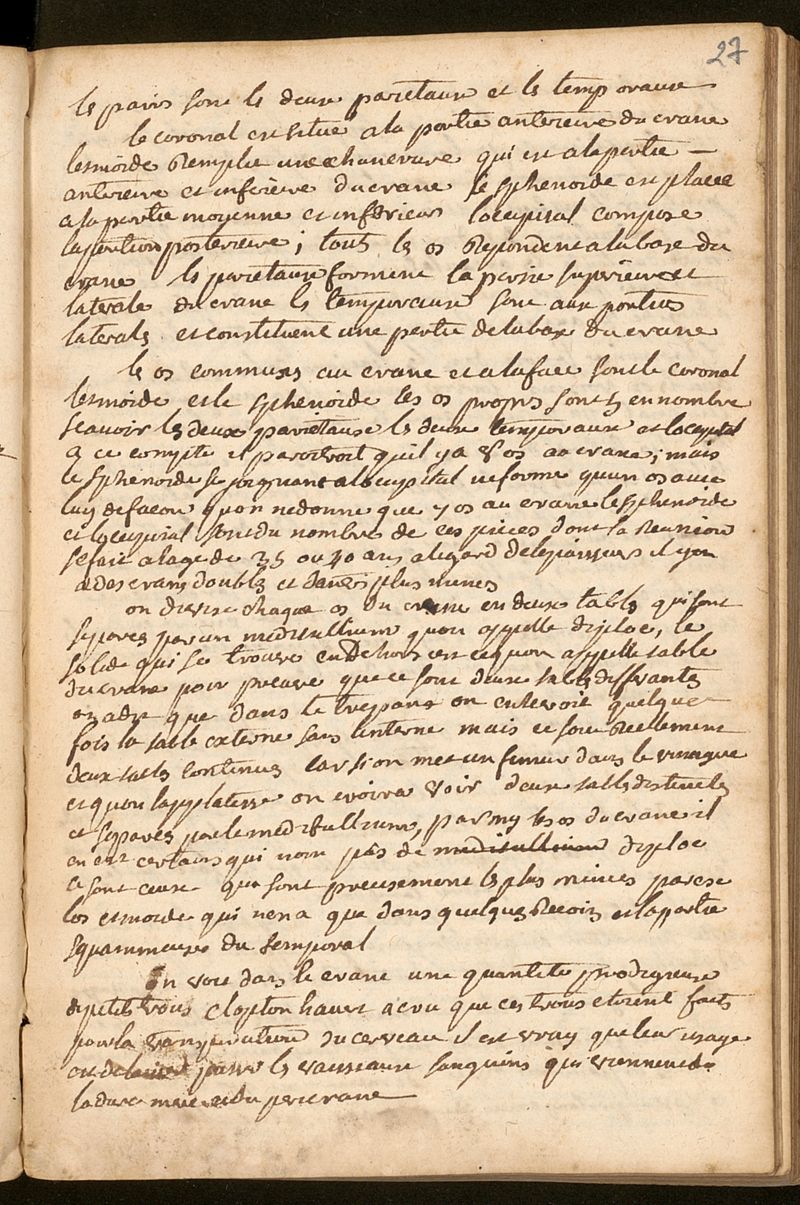 27
les pairs sont les deux parietaux et les temporaux
le coronal est situé a la partie anterieure du crane
lesmoide Remplie une echancrure qui est a la partie —
anterieure et inferieure du crane le sphenoide est placee
a la partie moyenne et inferieur loccipital compose
la portion posterieure ; touts les os Repondent a la base du
crane les parietaux forment la partie superieure et
laterale du crane les temporaux sont aux parties
laterales et constituent une partie de la base du crane
les os communs au crane et a la face sont le coronal
lesmoide et le sphenoide les os propres sont 5 en nombre
scavoir les deux parietaux les deux temporaux et loccipital
a ce compte il paroitroit quil y a 8 os au crane ; mais
le sphenoide se joignant a loccipital ne forme quun os avec
luy de facon quon ne donne que 7 os au crane le sphenoide
et loccipital sont du nombre de ces pieces dont la Reunion
se fait a lage de 35 ou 40 ans a legard de lepaisseur il y en
a des crans doubles et dautres plus minces
on divise chaque os du crane en deux tables qui sont
separes par un meditullium quon appelle diploe, le
solide qui se trouve en dehors est ce quon appelle table
du crane pour preuve que ce sont deux tables differantes
on a dit que dans le trepane on enlevoit quelque
fois la table externe sans linterne mais ce sont Reellement
deux tables continues car si on met un femur dans le vinaigre
et quon lapplatisse on croira voir deux tables distinctes
et separes par le meditullium, parmy les os du crane il
en est certains qui nont pas de meditullium diploe
ce sont ceux que sont precisement les plus minces parexe
los esmoide qui nen a que dans quelques Recoins et la partie
squammeuse du temporal
on voit dans le crane une quantité prodigieuse
de petits trous clopton havers a cru que ces trous etoient faits
pour la transpiration du cerveau il est vray que leur usage
est de passer les vaisseaux sanguins qui viennent de
la dure mere et du pericrane